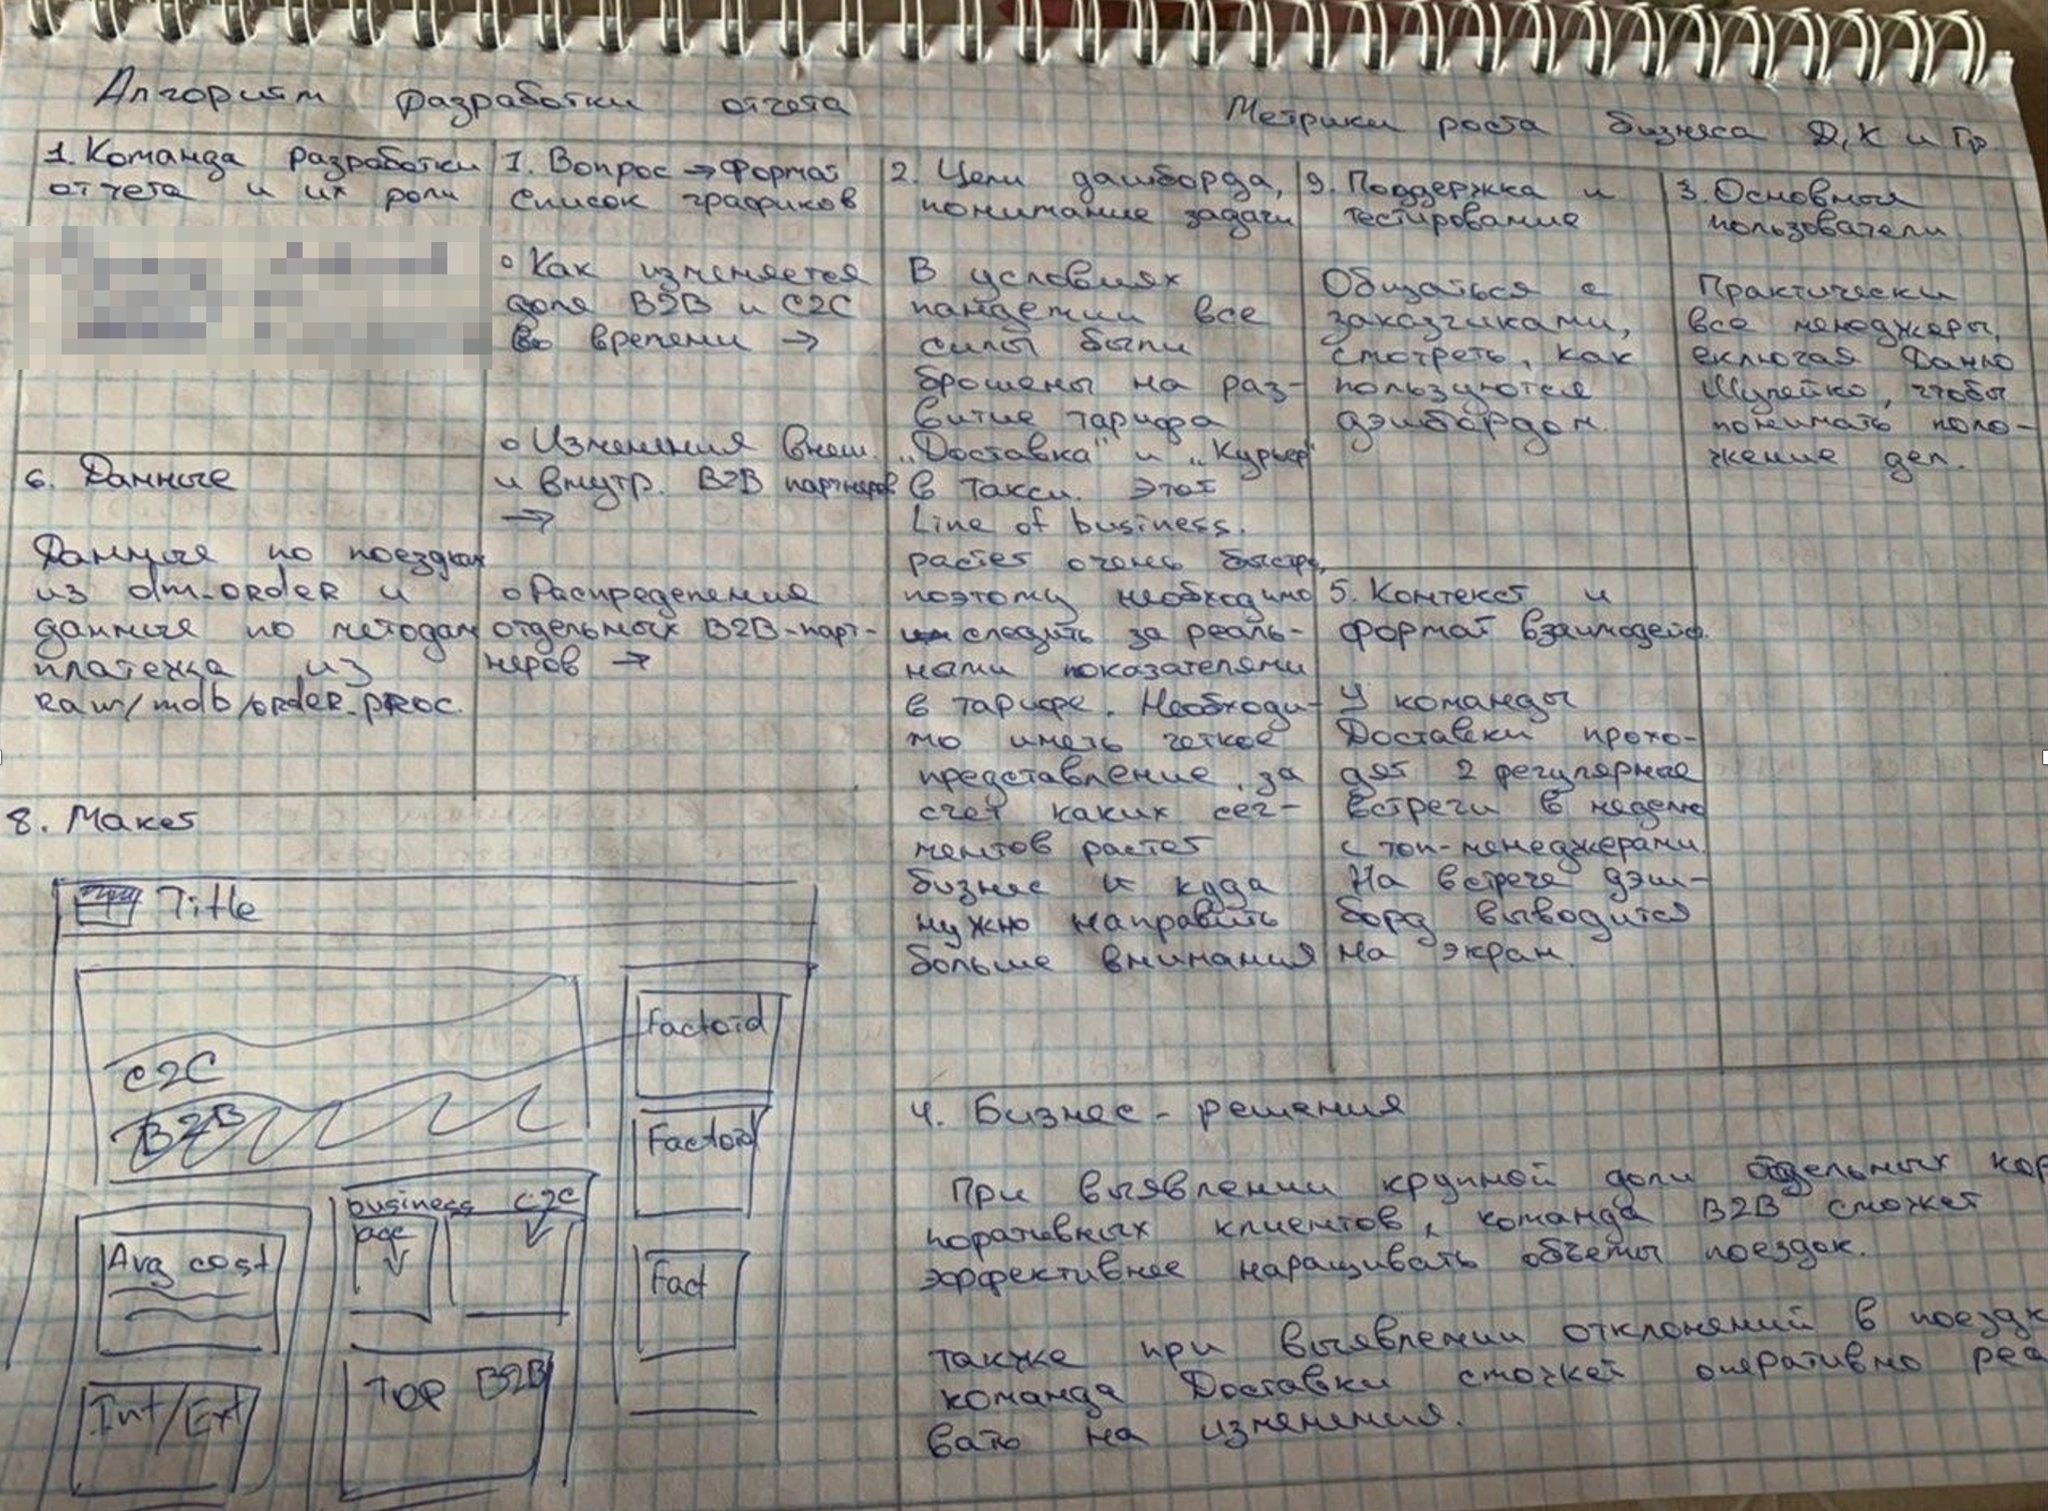 Алгоритм разработки отчета
Метрики роста бизнеса Д, К и Гр.
1. Команда разработки
отчета и их роли
1. Вопрос → Формат
Список графиков
○ Как изменяется
доля B2B и C2C
во времени →
○ Изменения внеш.
и внутр. B2B партнеров
→
○ Распределения
отдельных B2B-парт-
неров →
2. Цели дашборда,
понимание задачи
В условиях
пандемии все
силы были
брошены на раз-
витие тарифа
„Доставка" и „Курьер"
в Такси. Этот
Line of business.
растет очень быстро,
поэтому необходимо
следить за реаль-
ными показателями
в тарифе. Необходи-
мо иметь четкое
представление, за
счет каких сег-
ментов растет
бизнес и куда
нужно направить
больше внимания
9. Поддержка и
тестирование
Общаться с
заказчиками,
смотреть, как
пользуются
дэшбордом.
3. Основные
пользователи
Практически
все менеджеры,
включая Даню
Шулейко, чтобы
понимать поло-
жение дел.
6. Данные
Данные по поездкам
из dm_order и
данные по методам
платежа из
raw/mdb/order_proc.
5. Контекст и
формат взаимодейств.
У команды
Доставки прохо-
дят 2 регулярные
встречи в неделю
с топ-менеджерами.
На встрече дэш-
борд выводится
на экран.
8. Макет
Title
C2C
B2B
Factoid
Factoid
Fact
Avg cost
Int/Ext
business C2C
age
Top B2B
4. Бизнес-решения
При выявлении крупной доли отдельных кор
поративных клиентов, команда B2B сможет
эффективнее наращивать объемы поездок.
также при выявлении отклонений в поездк
команда Доставки сможет оперативно реа
вать на изменения.